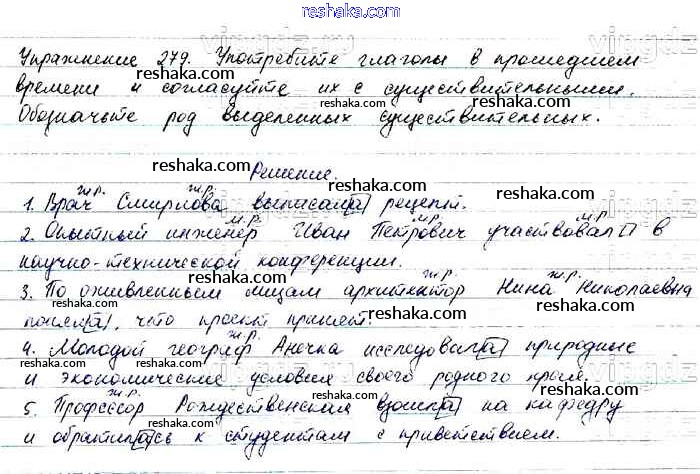 reshaka.com
Упражнение 279. Употребите глаголы в прошедшем
reshaka.com reshaka.com
времени и согласуйте их с существительными.
reshaka.com reshaka.com
Обозначьте род выделенных существительных.
reshaka.com
Решение.
reshaka.com
ж.р. ж.р.
1. Врач Смирнова выписал[а] рецепт.
reshaka.com
м.р. м.р. м.р.
2. Опытный инженер Иван Петрович участвовал□ в
научно-технической конференции.
reshaka.com reshaka.com
ж.р. ж.р.
3. По оживленным лицам архитектор Нина Николаевна
reshaka.com reshaka.com
понял[а], что проект принят.
reshaka.com
ж.р.
4. Молодой географ Анечка исследовал[а] природные
reshaka.com
и экономические условия своего родного края.
reshaka.com reshaka.com
ж.р.
5. Профессор Рождественская взошл[а] на кафедру
reshaka.com reshaka.com
и обратил[а]сь к студентам с приветствием.
reshaka.com